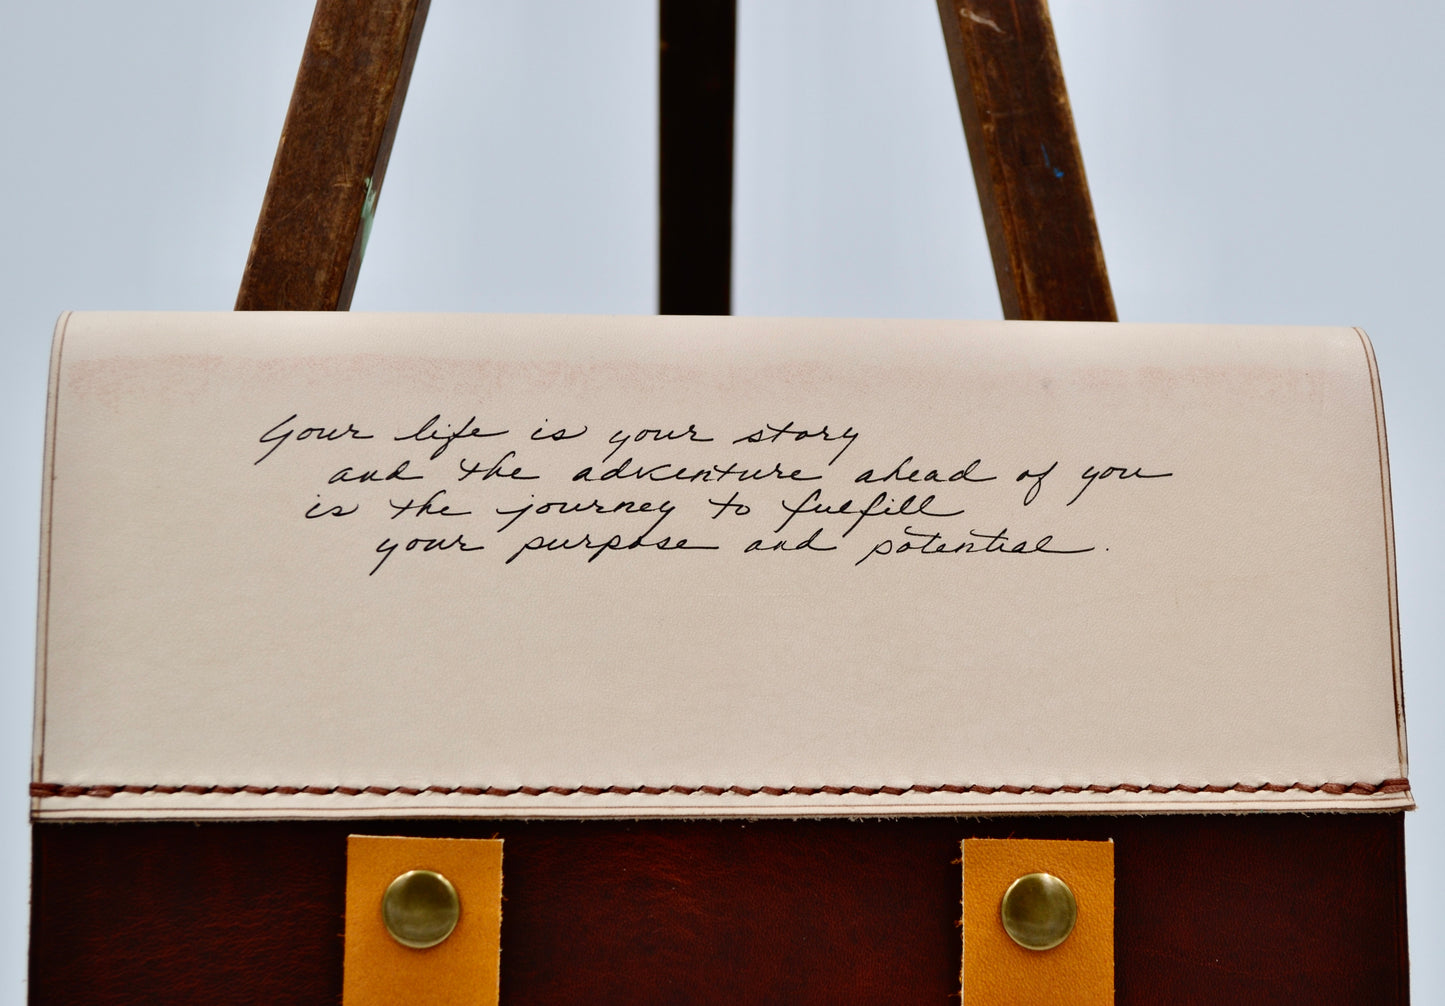 Your life is your story
and the adventure ahead of you
is the journey to fulfill
your purpose and potential.